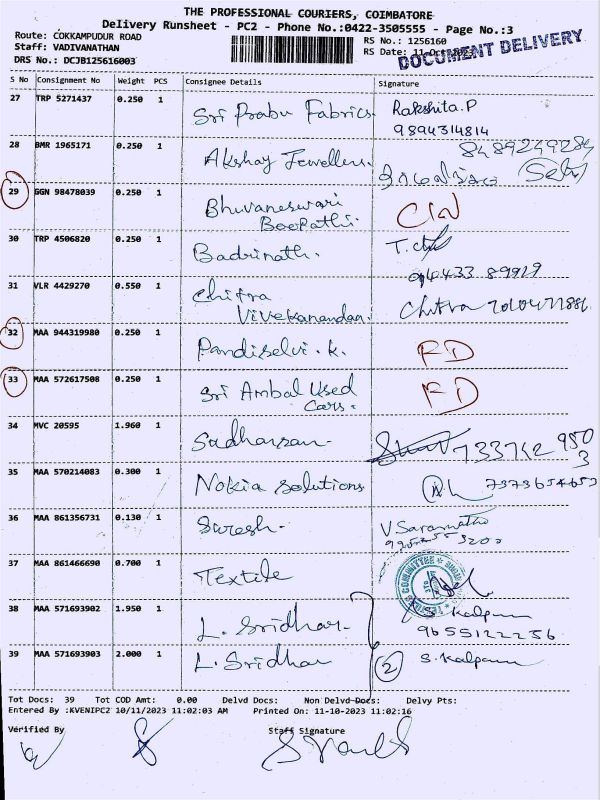 THE PROFESSIONAL COURIERS, COIMBATORE
Delivery Runsheet - PC2 - Phone No.:0422-3505555 - Page No.:3
Route: COKKAMPUDUR ROAD
Staff: VADIVANATHAN
DRS No.: DCJB125616003
RS No.: 1256160
RS Date: 11-Oct-2023
DOCUMENT DELIVERY
S No Consignment No Weight PCS Consignee Details Signature
27 TRP 5271437 0.250 1 Sri Prabu Fabrics. Rakshita.P
9894314814
28 BMR 1965171 0.250 1 Akshay Jewellers. 8489249284
29 GGN 98478039 0.250 1 Bhuvaneswari
Boopathi.
30 TRP 4506820 0.250 1 Badrinath.
31 VLR 4429270 0.550 1 Chitra
Vivekanandan. Chitra
32 MAA 944319980 0.250 1 Pandiselvi.K. FD
33 MAA 572617508 0.250 1 Sri Ambal Used
Cars. FD
34 MVC 20595 1.960 1 Sudharsan.
35 MAA 570214083 0.300 1 Nokia Solutions 7373654653
36 MAA 861356731 0.130 1 Suresh.
37 MAA 861466690 0.700 1 Textile
COMMITTEE
38 MAA 571693902 1.950 1 L. Sridhar. S Kalpana
9655122256
39 MAA 571693903 2.000 1 L. Sridhar 2 S. Kalpana
Tot Docs: 39 Tot COD Amt: 0.00 Delvd Docs: Non Delvd Docs: Delvy Pts:
Entered By :KVENIPC2 10/11/2023 11:02:03 AM Printed On: 11-10-2023 11:02:16
Verified By Staff Signature